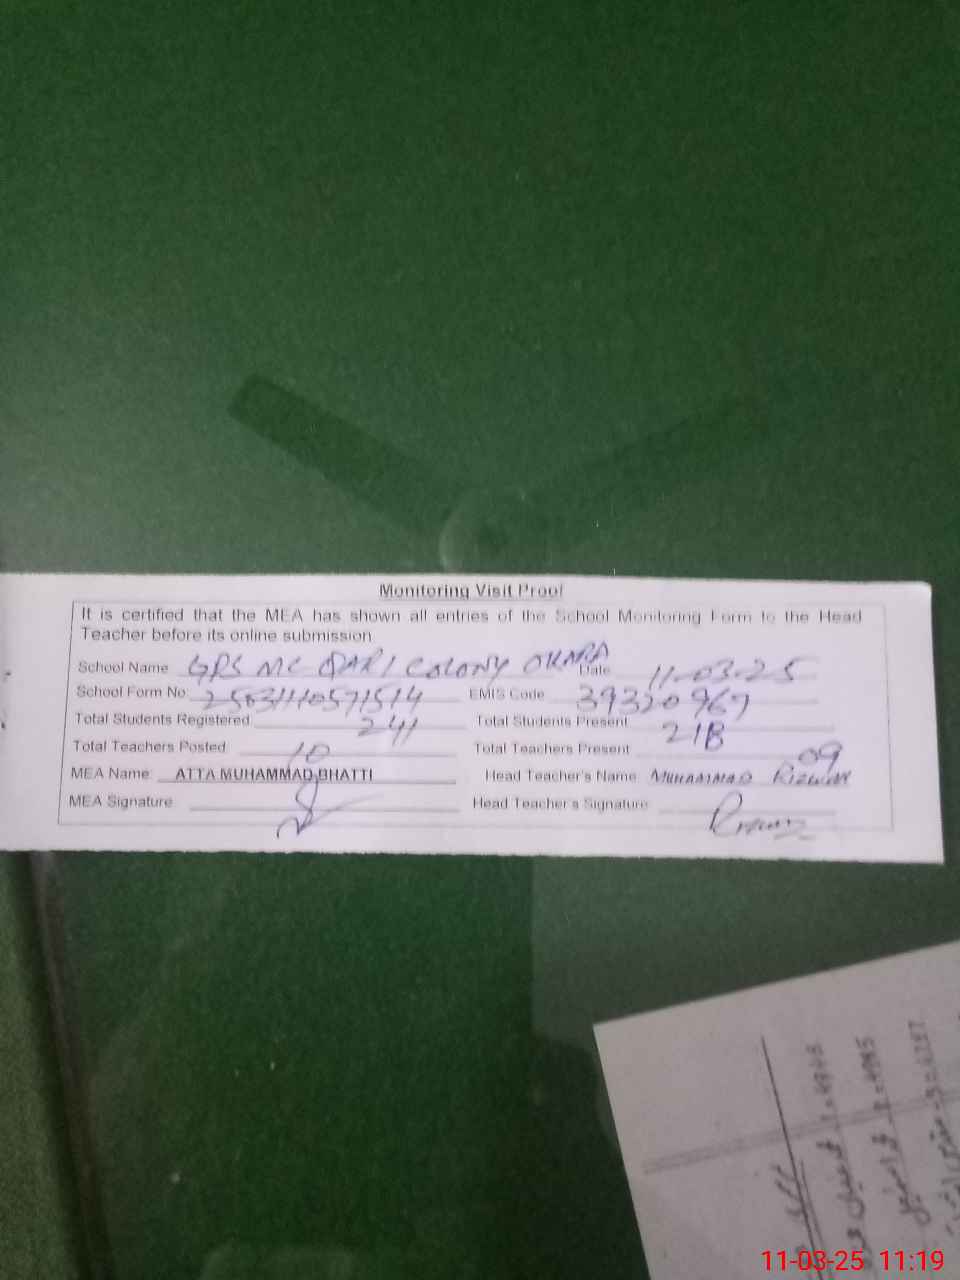 Monitoring Visit Proof
It is certified that the MEA has shown all entries of the School Monitoring Form to the Head
Teacher before its online submission
School Name GPS MC QARI COLONY OKARA Date 11-03-25
School Form No. 25031110571514 EMIS Code 39320967
Total Students Registered 241 Total Students Present 218
Total Teachers Posted 10 Total Teachers Present 09
MEA Name: ATTA MUHAMMAD BHATTI Head Teacher's Name MUHAMMAD RIZWAN
MEA Signature Head Teacher's Signature Rizwan
11-03-25 11:19